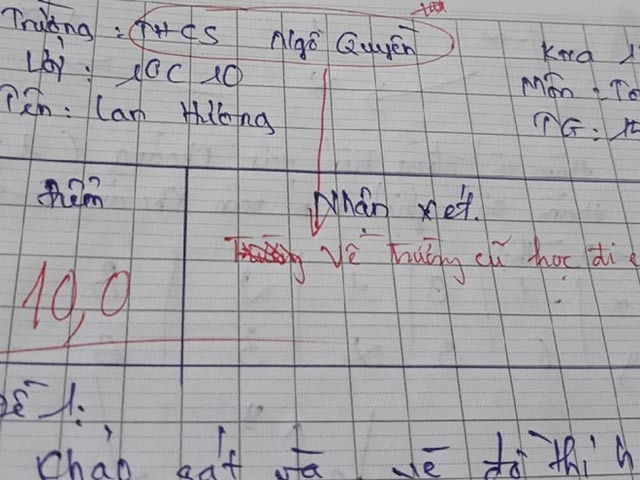 Trường : THCS Ngô Quyền
Lớp : 10C10
Tên : Lan Hương
Môn : To
TG :
Điểm
Nhận xét.
10,0
Về Trường cũ học đi
Đề 1:
Khảo sát và vẽ đồ thị h